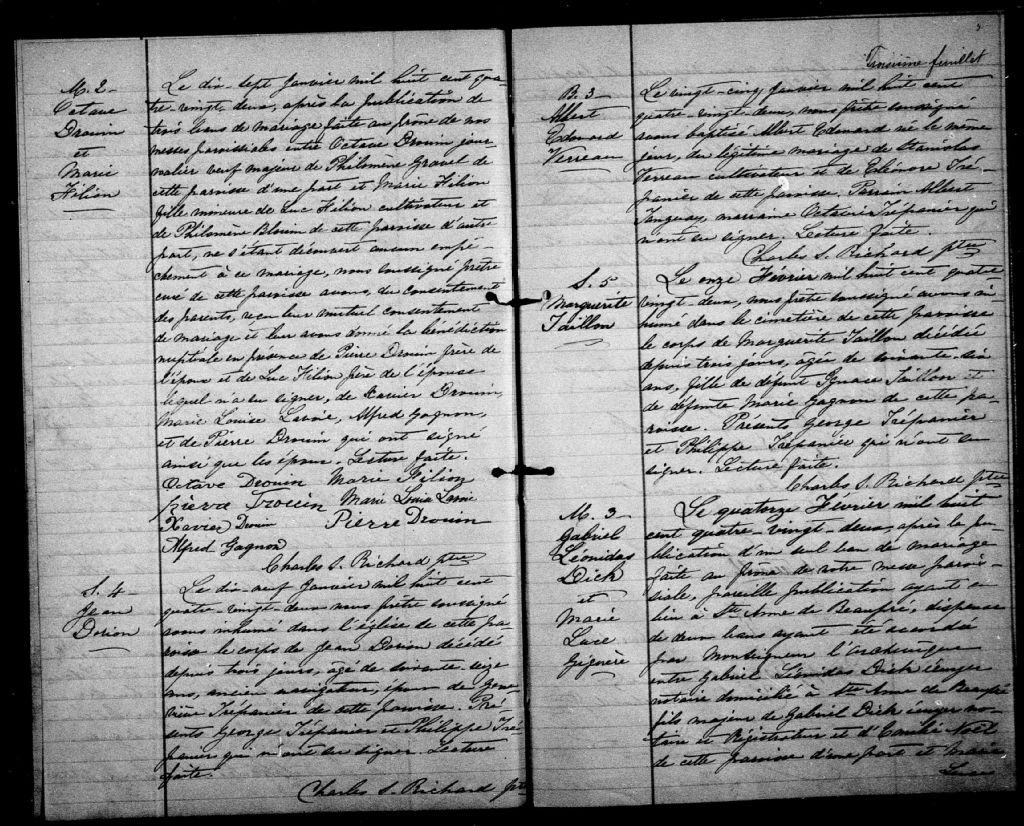 M. 2
Octave
Drouin
et
Marie
Filion
Le dix-sept Janvier mil huit cent qua
tre-vingt-deux, après la publication de
trois bans de mariage faite au prône de nos
messes paroissiales entre Octave Drouin jour
nalier veuf majeur de Philomène Gravel de
cette paroisse d'une part et Marie Filion
fille mineure de Luc Filion cultivateur et
de Philomène Blouin de cette paroisse d'autre
part, ne s'étant découvert aucun empê-
chement à ce mariage, nous soussigné prêtre
curé de cette paroisse avons, du consentement
des parents, reçu leur mutuel consentement
de mariage et leur avons donné la bénédiction
nuptiale en présence de Pierre Drouin frère de
l'époux et de Luc Filion père de l'épouse
lequel n'a su signer, de Xavier Drouin,
Marie Louise Lavoie, Alfred Gagnon,
et de Pierre Drouin qui ont signé
ainsi que les époux. Lecture faite.
Octave Drouin Marie Filion
Pierre Drouin Marie Louia Lavoie
Xavier Drouin Pierre Drouin
Alfred Gagnon
Charles S. Richard ptre
S. 4
Jean
Dorion
Le dix-neuf Janvier mil huit cent
quatre-vingt-deux nous prêtre soussigné
avons inhumé dans l'église de cette pa
roisse le corps de Jean Dorion décédé
depuis trois jours, agé de soixante seize
ans, ancien navigateur, époux de Gene
viève Trépanier de cette paroisse. Pré
sents George Trépanier et Philippe Tré
panier qui n'ont su signer. Lecture
faite.
Charles S. Richard ptre
Troisième feuillet
B. 3
Albert
Edouard
Verreau
Le vingt-cinq Janvier mil huit cent
quatre-vingt-deux, nous prêtre soussigné
avons baptisé Albert Edouard né le même
jour, du légitime mariage de Stanislas
Verreau cultivateur et de Eléonore Tré
panier de cette paroisse. Parrain Albert
Tanguay, marraine Octavie Trépanier qui
n'ont su signer. Lecture faite.
Charles S. Richard ptre
S. 5
Marguerite
Taillon
Le onze Février mil huit cent quatre
vingt-deux, nous prêtre soussigné avons in
humé dans le cimetière de cette paroisse
le corps de Marguerite Taillon décédée
depuis trois jours, agée de soixante-six
ans, fille de défunt Ignace Taillon et
de défunte Marie Gagnon de cette pa
roisse. Présents George Trépanier
et Philippe Trépanier qui n'ont su
signer. Lecture faite.
Charles S. Richard ptre
M. 3
Gabriel
Léonidas
Dick
et
Marie
Luce
Giguère
Le quatorze Février mil huit
cent quatre-vingt-deux, après la pu
blication d'un seul ban de mariage
faite au prône de notre messe parois
siale, pareille publication ayant eu
lieu à Ste Anne de Beaupré, dispense
de deux bans ayant été accordée
par Monseigneur l'archevêque
entre Gabriel Léonidas Dick écuyer
notaire domicilié à Ste Anne de Beaupré
fils majeur de Gabriel Dick écuyer no
taire et Régistrateur et d'Emilie Noël
de cette paroisse d'une part et Marie
Luce